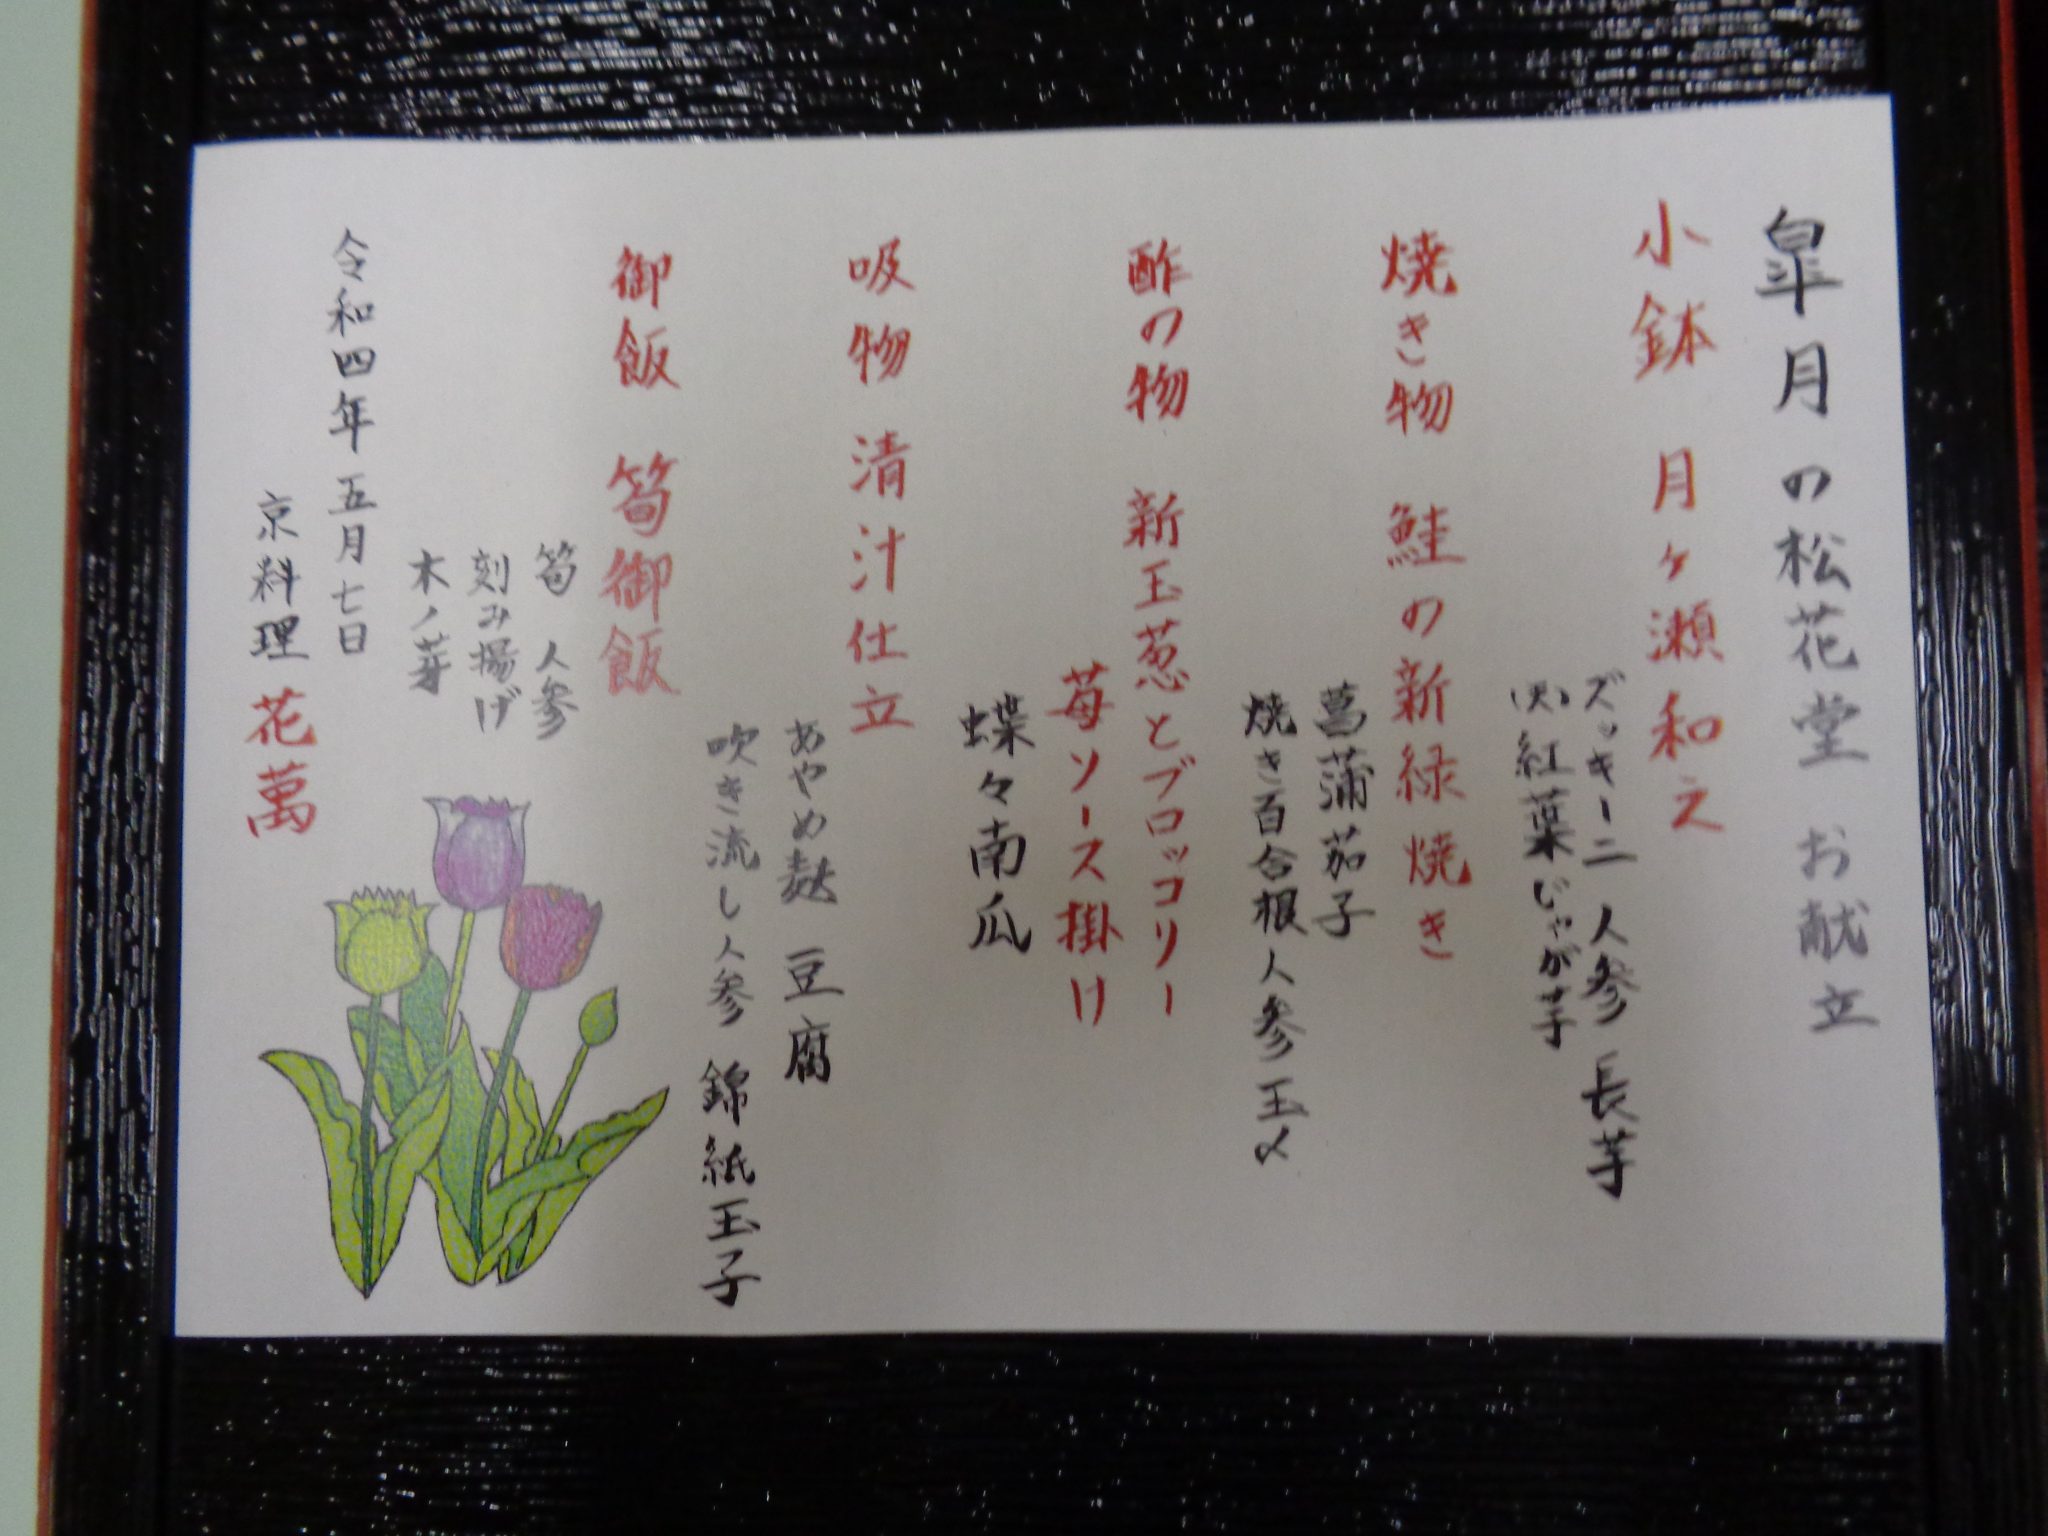 皐月の松花堂 お献立
小鉢 月ヶ瀬和え
ズッキーニ 人参 長芋
紅葉じゃが芋
焼き物 鮭の新緑焼き
菖蒲茄子
焼き百合根人参玉〆
酢の物 新玉葱とブロッコリー
苺ソース掛け
蝶々南瓜
吸物 清汁仕立
あやめ麩 豆腐
吹き流し人参 錦紙玉子
御飯 筍御飯
筍 人参
刻み揚げ
木ノ芽
令和四年 五月七日
京料理 花萬